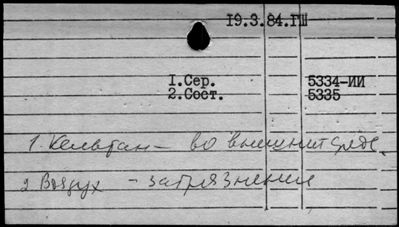 19.3.84.ГШ
1.Сер. 5334-ИИ
2.Сост. 5335
1. Кельтан - во внешнит среде.
2 Воздух - загрязнения